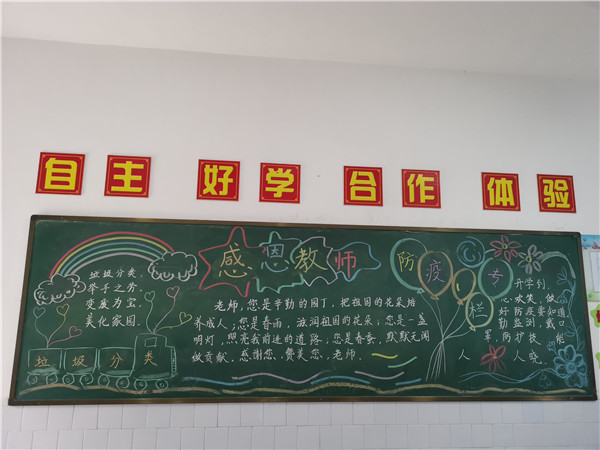 自主 好学 合作 体验
垃圾分类,
举手之劳。
变废为宝,
美化家园。
垃圾分类
感恩教师
老师,您是辛勤的园丁,把祖国的花朵培
养成人;您是春雨,滋润祖国的花朵;您是一盏
明灯,照亮我前进的道路,您是春蚕,默默无闻
做贡献。感谢您,赞美您,老师。
防疫专栏
开学到,
心欢笑,做
好防疫要知道
勤监测,戴口
罩,防护技能
人人晓。